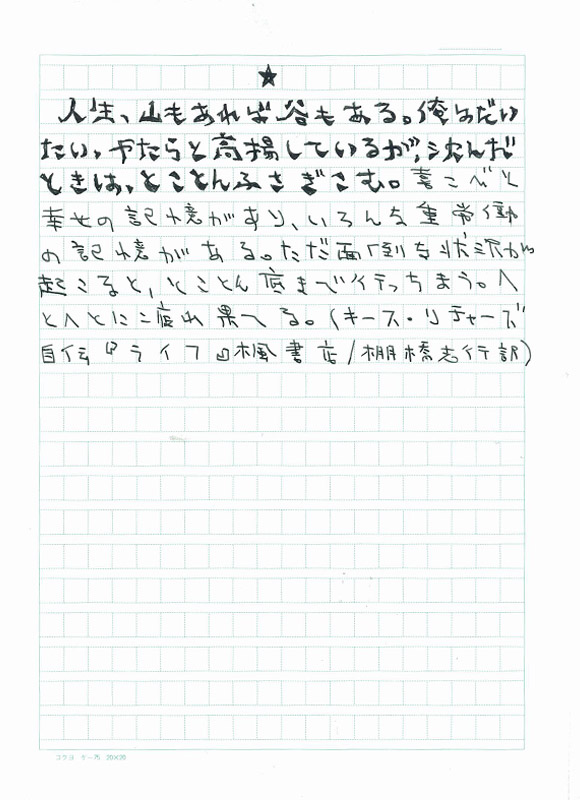 ★
人生、山もあれば谷もある。俺はだい
たい、やたらと高揚しているが、沈んだ
ときは、とことんふさぎこむ。喜こべと
幸せの記憶があり、いろんな重労働
の記憶がある。ただ面倒な状況が
起こると、とことん底まで行っちまう。へ
とへとに疲れ果てる。(キース・リチャーズ
自伝『ライフ』楓書店/棚橋志行訳)
コクヨ ケー75 20×20